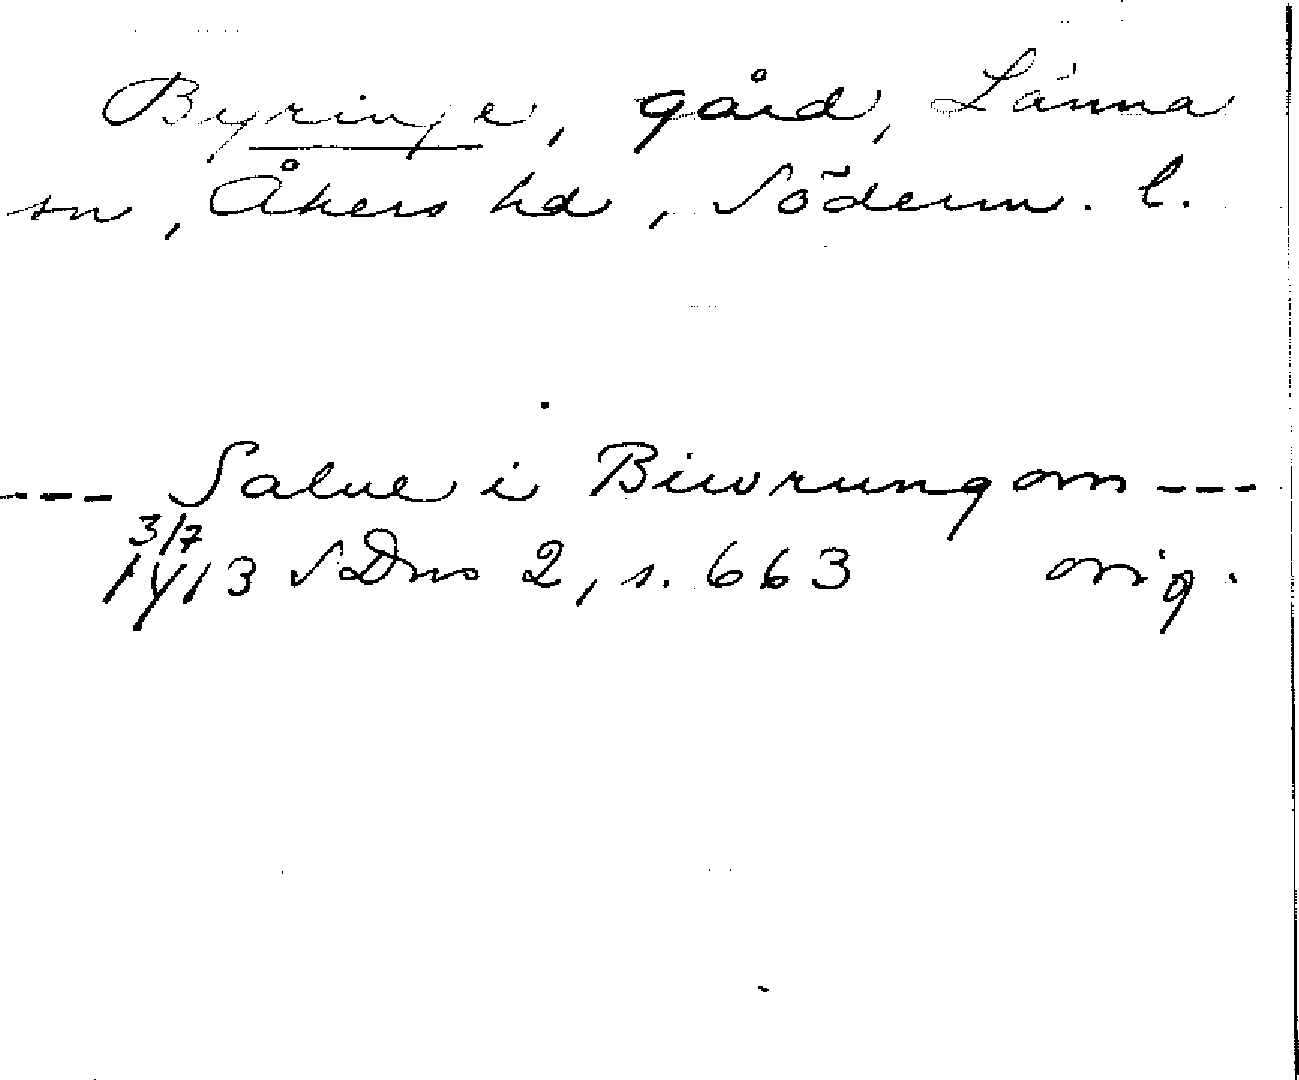 Byringe, gård, Länna
sn, Åkers hd, Söderm. l.
--- Salue i Biwrungom ---
3/7
1413 SDns 2, s. 663 orig.